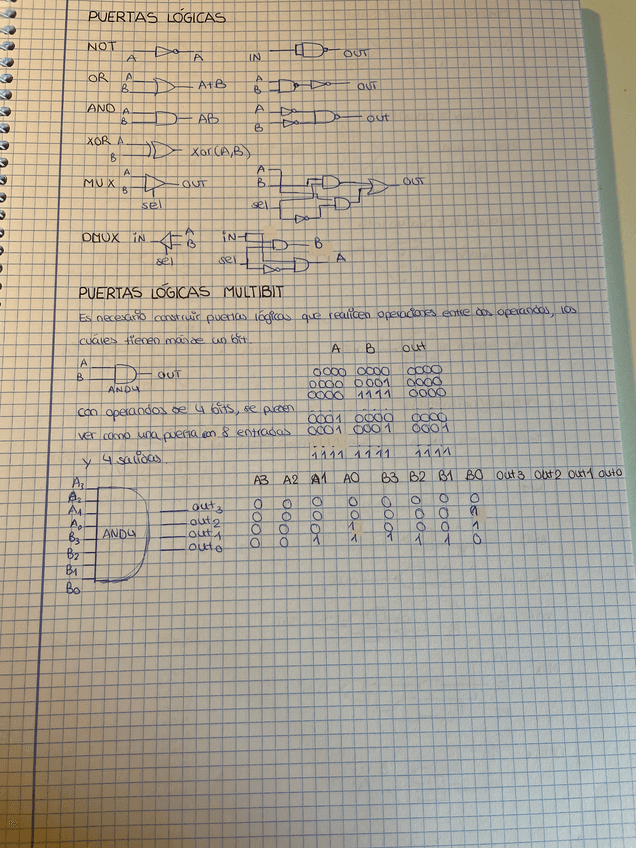 PUERTAS LÓGICAS
NOT A A IN OUT
OR A B A+B A B OUT
AND A B AB A B out
XOR A B Xor(A,B)
MUX A B OUT sel A B sel OUT
DMUX IN A B sel IN sel B A
PUERTAS LÓGICAS MULTIBIT
Es necesario construir puertas lógicas que realicen operaciones entre dos operandos, los
cuáles tienen más de un bit.
A B out
A B OUT
AND4
0000 0000 0000
0000 0001 0000
0000 1111 0000
con operandos de 4 bits, se pueden
0001 0000 0000
ver como una puerta con 8 entradas
0001 0001 0001
y 4 salidas.
1111 1111 1111
A3 A2 A1 A0 B3 B2 B1 B0 out3 out2 out1 out0
0 0 0 0 0 0 0 0
0 0 0 0 0 0 0 1
0 0 0 1 0 0 0 1
0 0 1 1 1 1 1 0
A3
A2
A1
A0
B3
B2
B1
B0
AND4
out3
out2
out1
out0